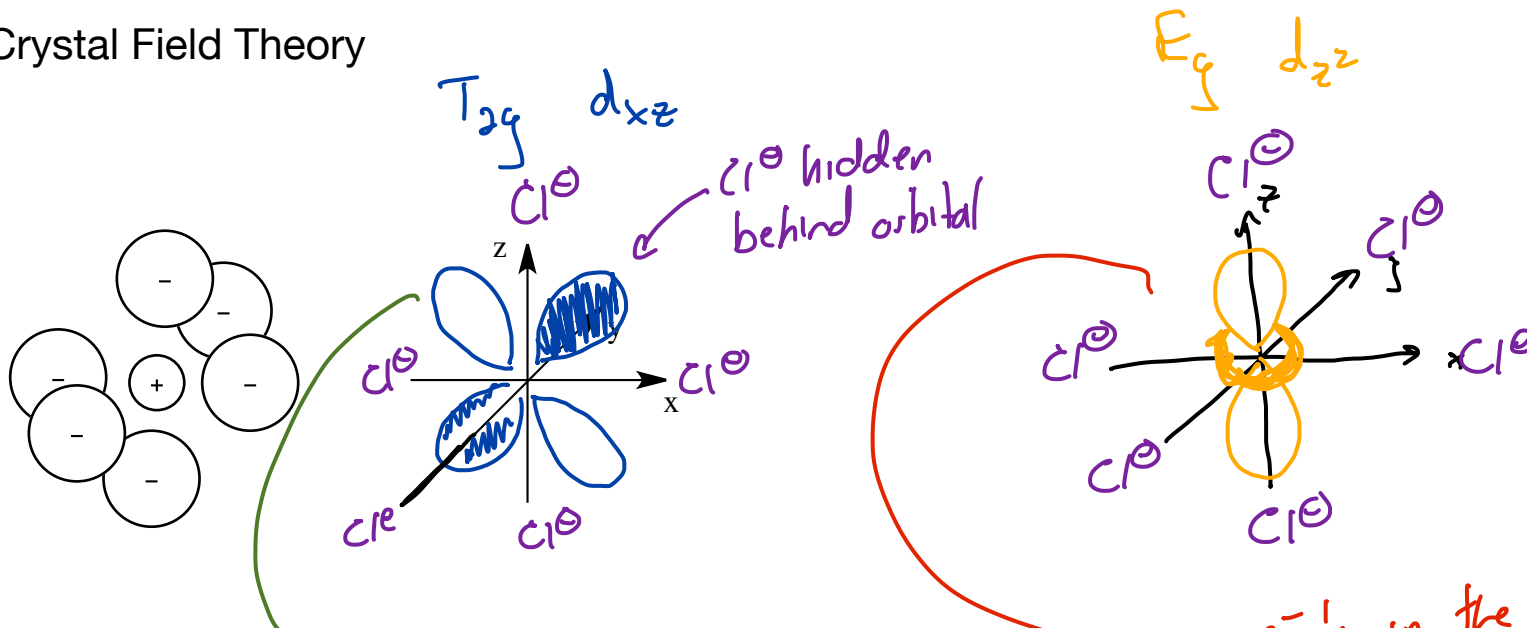 Crystal Field Theory
T₂g dxz
Eg dz²
Cl⊖
Cl⊖ hidden
behind orbital
z
y
Cl⊖
Cl⊖
x
Cl⊖
Cl⊖
−
−
−
+
−
−
−
Cl⊖
z
Cl⊖
y
Cl⊖
x
Cl⊖
Cl⊖
Cl⊖
in the